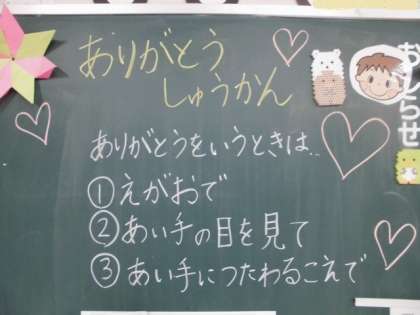 ありがとう
しゅうかん
おしらせ
ありがとうをいうときは..
①えがおで
②あい手の目を見て
③あい手につたわるこえで